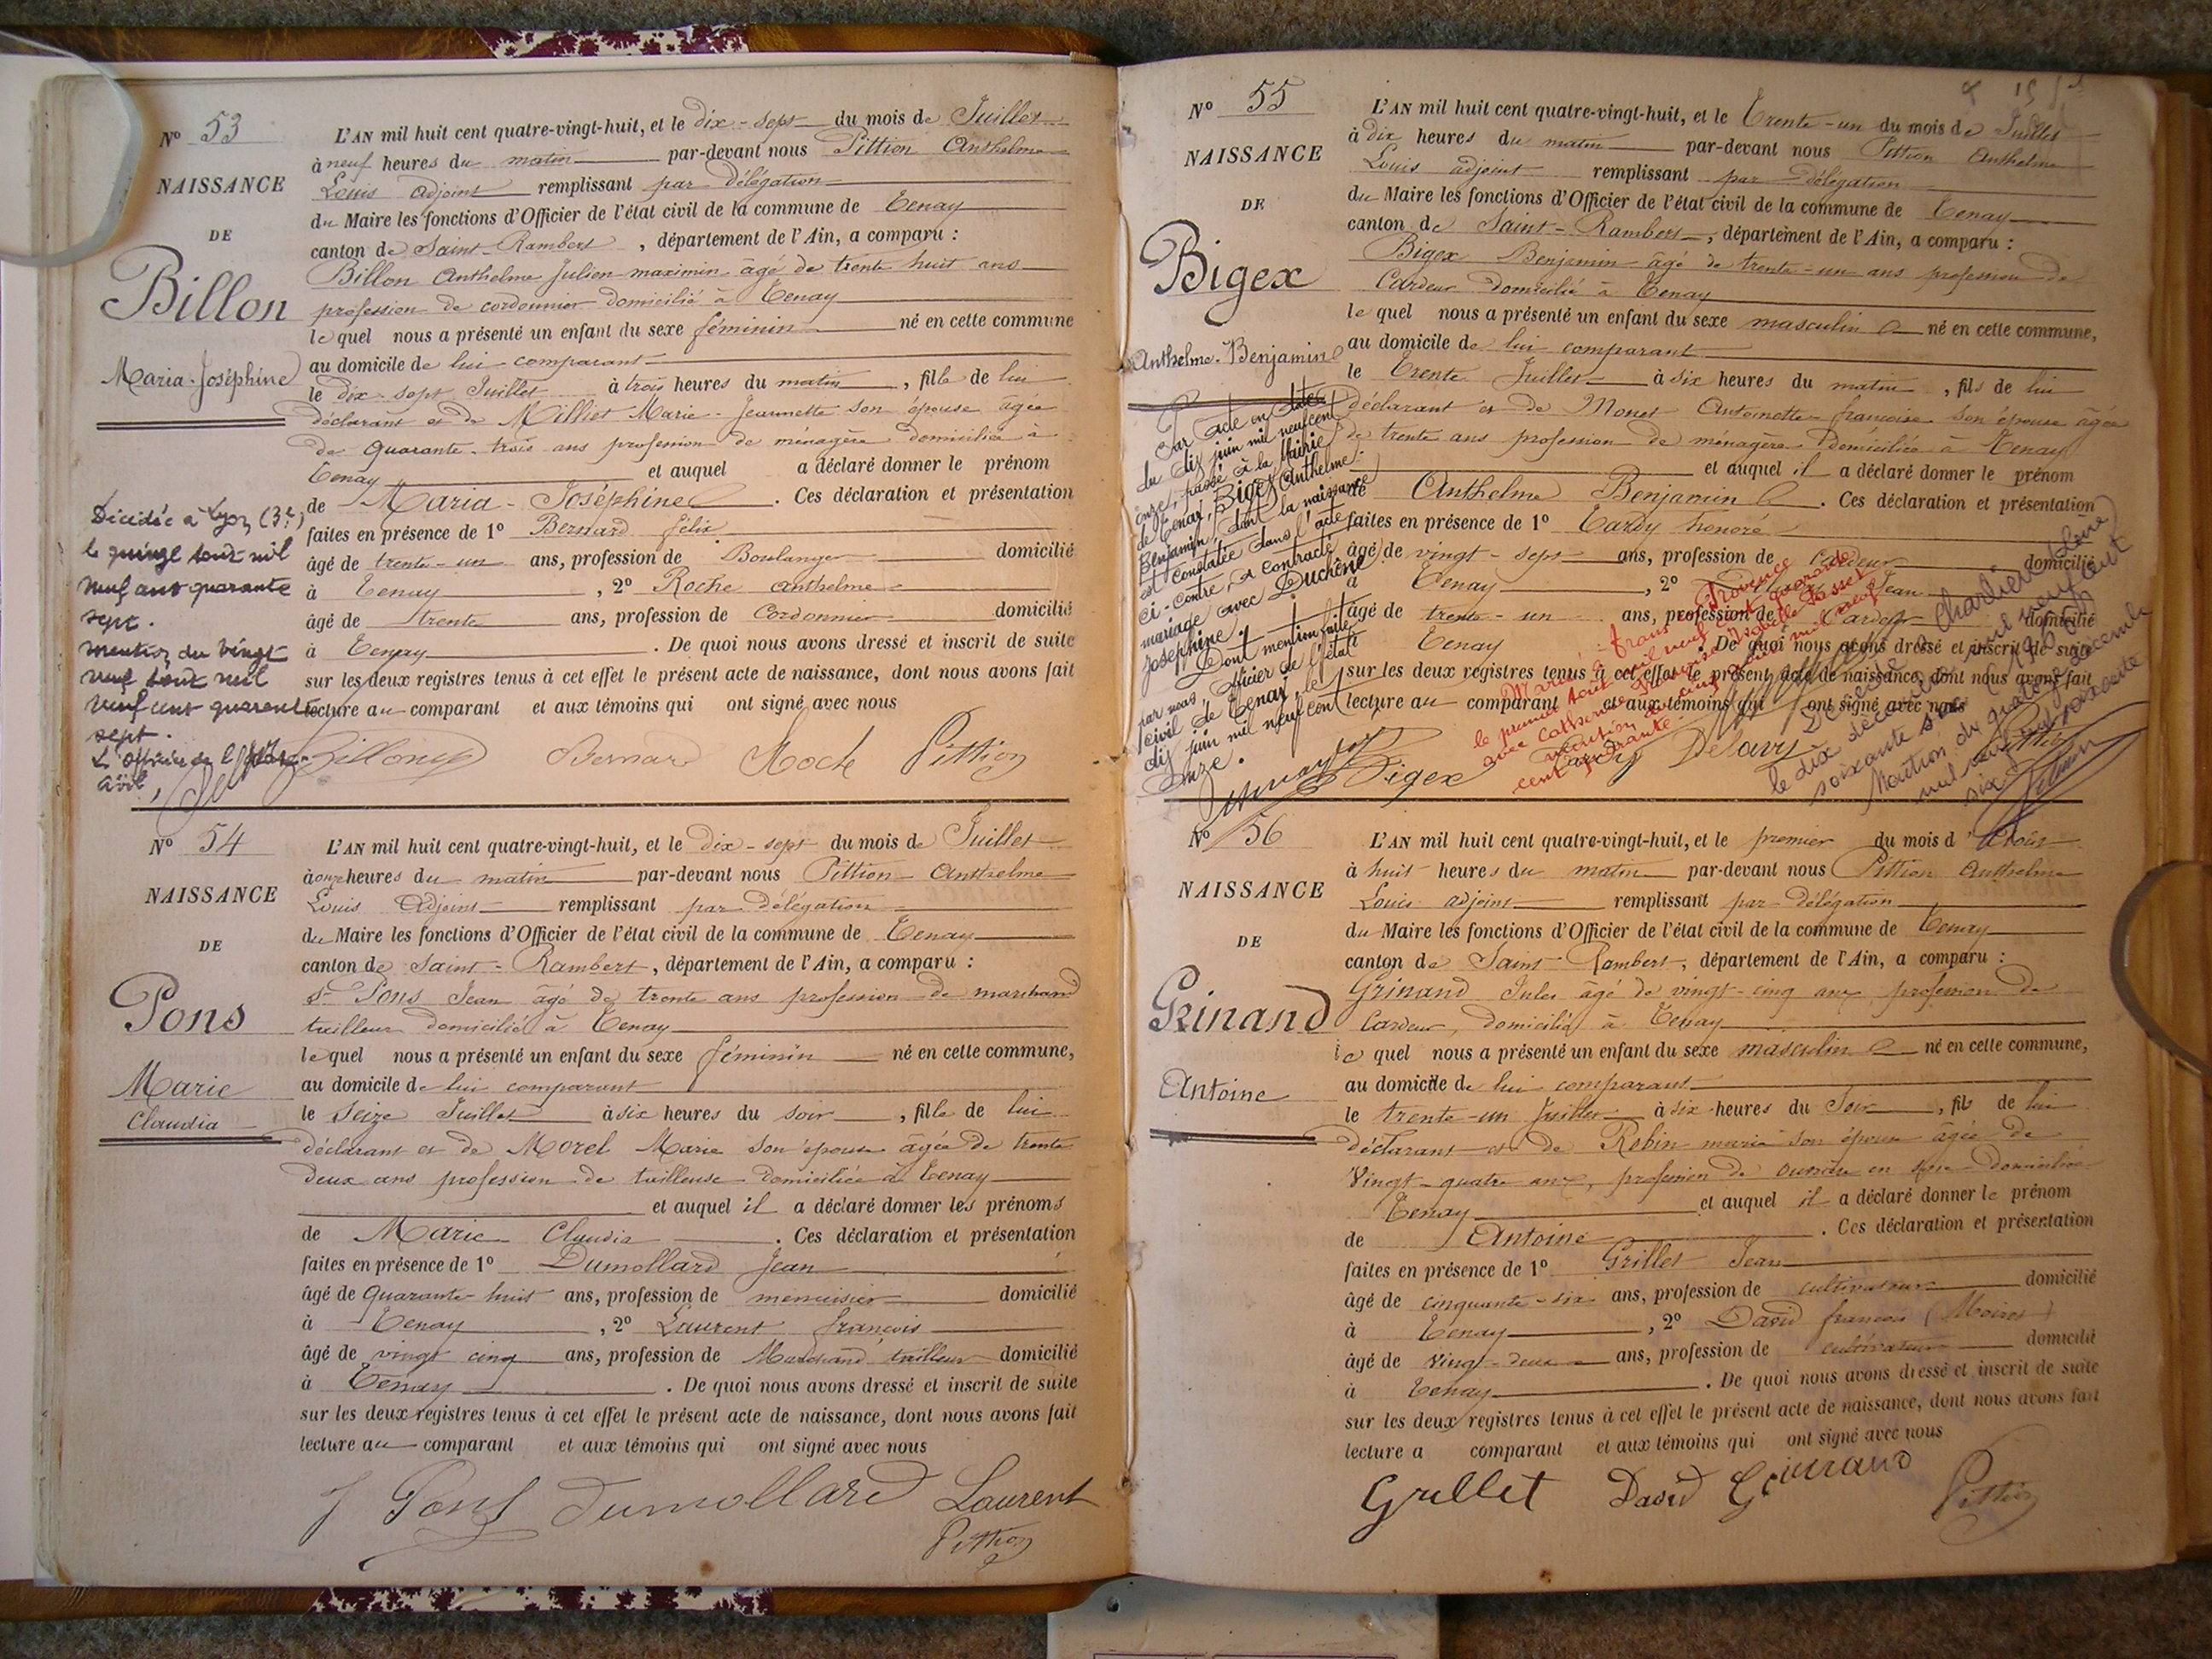 N° 53
NAISSANCE
DE
Billon
Maria-Joséphine
Décédée à Lyon (3e)
le quinze août mil
neuf cent quarante
sept.
mention du vingt
neuf août mil
neuf cent quarante
sept.
L'officier de l'état
civil,
L'AN mil huit cent quatre-vingt-huit, et le dix-sept du mois de Juillet
à neuf heures du matin par-devant nous Pittion Anthelme
Louis adjoint remplissant par délégation
du Maire les fonctions d'Officier de l'état civil de la commune de Tenay
canton de Saint-Rambert, département de l'Ain, a comparu :
Billon Anthelme Julien maximin âgé de trente huit ans
profession de cordonnier domicilié à Tenay
le quel nous a présenté un enfant du sexe féminin né en cette commune
au domicile de lui comparant
le dix-sept Juillet à trois heures du matin, fille de lui
déclarant et de Milliet Marie-Jeannette son épouse âgée
de Quarante-trois ans profession de ménagère domiciliée à
Tenay et auquel a déclaré donner le prénom
de Maria-Joséphine. Ces déclaration et présentation
faites en présence de 1° Bernard félix
âgé de trente-un ans, profession de Boulanger domicilié
à Tenay, 2° Roche anthelme
âgé de trente ans, profession de Cordonnier domicilié
à Tenay. De quoi nous avons dressé et inscrit de suite
sur les deux registres tenus à cet effet le présent acte de naissance, dont nous avons fait
lecture au comparant et aux témoins qui ont signé avec nous
Billon Bernard Roche Pittion
N° 54
NAISSANCE
DE
Pons
Marie
Claudia
L'AN mil huit cent quatre-vingt-huit, et le dix-sept du mois de Juillet
à onze heures du matin par-devant nous Pittion Anthelme
Louis Adjoint remplissant par délégation
du Maire les fonctions d'Officier de l'état civil de la commune de Tenay
canton de Saint-Rambert, département de l'Ain, a comparu :
sr Pons Jean âgé de trente ans profession de marchand
tailleur domicilié à Tenay
lequel nous a présenté un enfant du sexe féminin né en cette commune,
au domicile de lui comparant
le Seize Juillet à six heures du soir, fille de lui
déclarant et de Morel Marie son épouse âgée de trente
deux ans profession de tailleuse domiciliée à Tenay
et auquel il a déclaré donner les prénoms
de Marie Claudia. Ces déclaration et présentation
faites en présence de 1° Dumollard Jean
âgé de Quarante-huit ans, profession de menuisier domicilié
à Tenay, 2° Laurent françois
âgé de vingt cinq ans, profession de Marchand tailleur domicilié
à Tenay. De quoi nous avons dressé et inscrit de suite
sur les deux registres tenus à cet effet le présent acte de naissance, dont nous avons fait
lecture au comparant et aux témoins qui ont signé avec nous
J Pons Dumollard Laurent
Pittion
N° 55
NAISSANCE
DE
Bigex
Anthelme-Benjamin
Par acte en date
du dix juin mil neuf cent
onze, passé à la Mairie
de Tenay, Bigex Anthelme-
Benjamin, dont la naissance
est constatée dans l'acte
ci-contre, a contracté
mariage avec Duchêne
Joséphine.
Dont mention faite
par nous, officier de l'état
civil de Tenay, le
dix juin mil neuf cent
onze.
L'AN mil huit cent quatre-vingt-huit, et le Trente-un du mois de Juillet
à dix heures du matin par-devant nous Pittion Anthelme
Louis adjoint remplissant par délégation
du Maire les fonctions d'Officier de l'état civil de la commune de Tenay
canton de Saint-Rambert, département de l'Ain, a comparu :
Bigex Benjamin âgé de trente-un ans profession de
Cardeur domicilié à Tenay
le quel nous a présenté un enfant du sexe masculin né en cette commune,
au domicile de lui comparant
le Trente Juillet à six heures du matin, fils de lui
déclarant et de Monet Antoinette françoise son épouse âgée
de trente ans profession de ménagère domiciliée à Tenay
et auquel il a déclaré donner le prénom
de Anthelme Benjamin. Ces déclaration et présentation
faites en présence de 1° Tardy honoré
âgé de vingt-sept ans, profession de cardeur domicilié
à Tenay, 2° Jean
âgé de trente-un ans, profession de Cardeur domicilié
Tenay. De quoi nous avons dressé et inscrit de suite
sur les deux registres tenus à cet effet le présent acte de naissance, dont nous avons fait
lecture au comparant et aux témoins qui ont signé avec nous
Bigex Tardy Delavy Pittion
Marié à
le premier Août mil neuf cent quarante
avec Catherine Françoise Isabelle
mention du cinq
cent quarante.
Décédé à Charlieu (Loire)
le dix décembre mil neuf cent
soixante six (1966)
Mention du quatorze décembre
mil neuf cent soixante
six
N° 56
NAISSANCE
DE
Grinand
Antoine
L'AN mil huit cent quatre-vingt-huit, et le premier du mois d'Août
à huit heures du matin par-devant nous Pittion Anthelme
Louis adjoint remplissant par délégation
du Maire les fonctions d'Officier de l'état civil de la commune de Tenay
canton de Saint Rambert, département de l'Ain, a comparu :
Grinand Jules âgé de vingt-cinq ans, profession de
Cardeur, domicilié à Tenay
le quel nous a présenté un enfant du sexe masculin né en cette commune,
au domicile de lui comparant
le trente-un Juillet à six heures du Soir, fils de lui
déclarant et de Robin marie son épouse âgée de
Vingt-quatre ans, profession de ouvrière en soie domiciliée
Tenay et auquel il a déclaré donner le prénom
de Antoine. Ces déclaration et présentation
faites en présence de 1° Grillet Jean
âgé de cinquante-six ans, profession de cultivateur domicilié
à Tenay, 2° David françois
âgé de Vingt-deux ans, profession de cultivateur domicilié
à Tenay. De quoi nous avons dressé et inscrit de suite
sur les deux registres tenus à cet effet le présent acte de naissance, dont nous avons fait
lecture a comparant et aux témoins qui ont signé avec nous
Grillet David Grinand Pittion